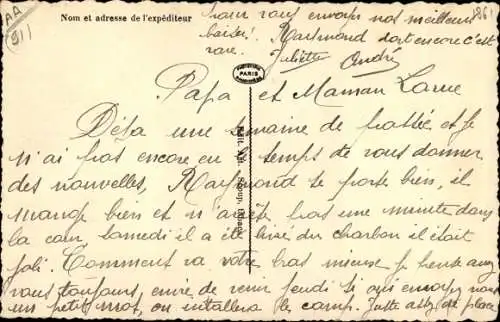 AA
911
1861
Nom et adresse de l'expéditeur
pour vous envoyer nos meilleurs
baiser! Raymond dort encore c'est
rare. Juliette André
PARIS
Papa et Maman Larue
Déja une semaine de passée et je
n'ai pas encore eu le temps de vous donner
des nouvelles, Raymond se porte bien, il
mange bien et n'arrête pas une minute dans
la cour, samedi il a été du charbon il était
joli. Comment va votre bras mieux je pense
vous toujours, envie de venir jeudi si envoyez nous
un petit mot, ou le camp. Juste assez de place